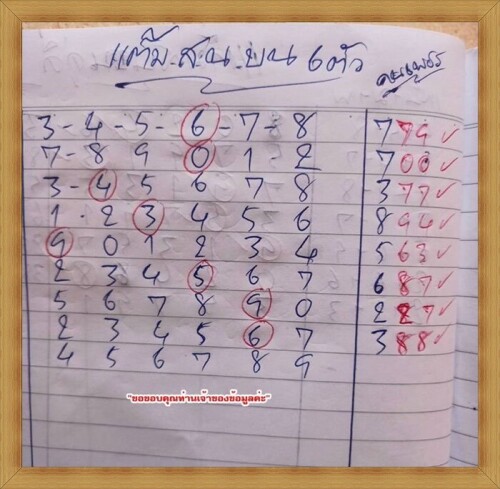 แต้ม.สูน.บน 6ตัว
คนเพชร
3-4-5-6-7-8 774✓
7-8 9 0 1-2 700✓
3-4 5 6 7 8 377✓
1-2 3 4 5 6 894✓
9 0 1 2 3 4 563✓
2 3 4 5 6 7 687✓
5 6 7 8 9 0 227✓
2 3 4 5 6 7 388✓
4 5 6 7 8 9
"ขอขอบคุณท่านเจ้าของข้อมูลค่ะ"